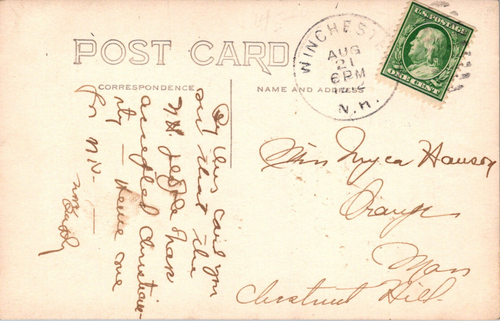 POST CARD
CORRESPONDENCE
NAME AND ADDRESS
WINCHESTER
AUG
21
6 PM
N.H.
U.S. POSTAGE
ONE CENT
By this card you
out that the
N.H. people have
accepted Christian-
ity — Hence one
for N.H. —
Miss Myca Hanson
Orange
Mass
Chestnut Hill.